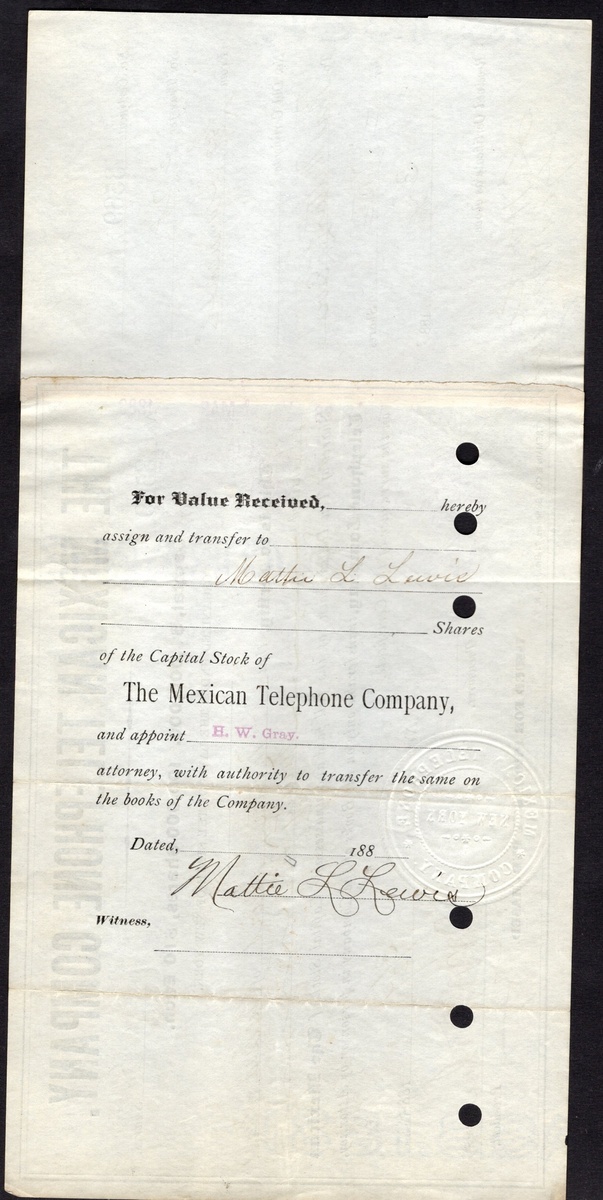 For Value Received, hereby
assign and transfer to
Mattie L Lewis
Shares
of the Capital Stock of
The Mexican Telephone Company,
and appoint H. W. Gray.
attorney, with authority to transfer the same on
the books of the Company.
Dated, 188
Mattie L Lewis
Witness,
THE MEXICAN TELEPHONE COMPANY.